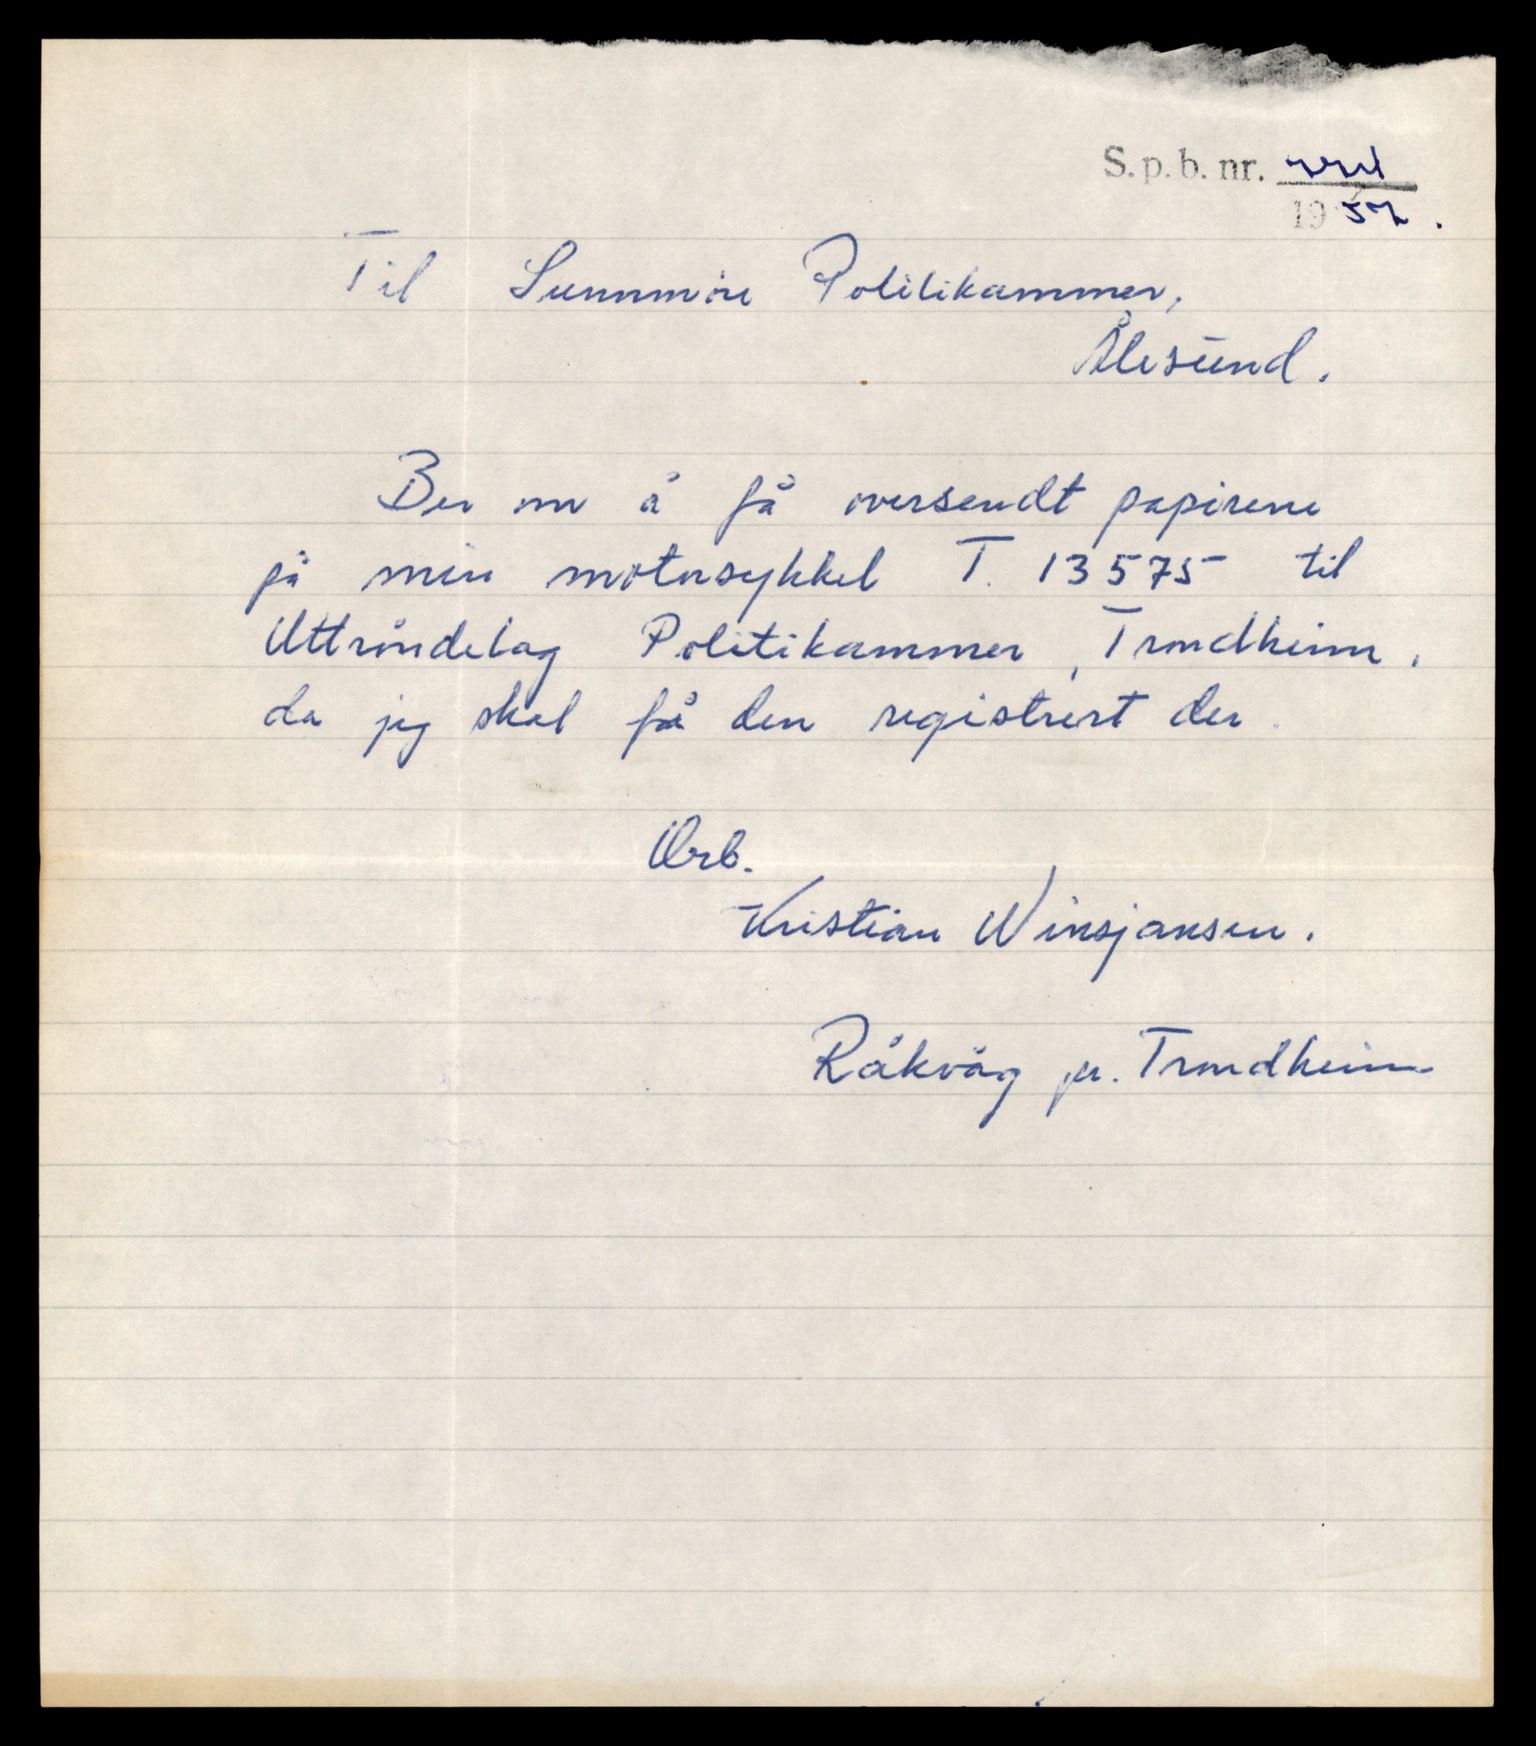 S. p. b. nr.
19 57.
Til Sunnmöre Politikammer,
Ålesund.
Ber om å få oversendt papirene
på min motorsykkel T. 13575 til
Uttröndelag Politikammer, Trondheim,
da jeg skal få den registrert der.
Ærb.
Kristian Winsjansen.
Råkvåg pr. Trondheim